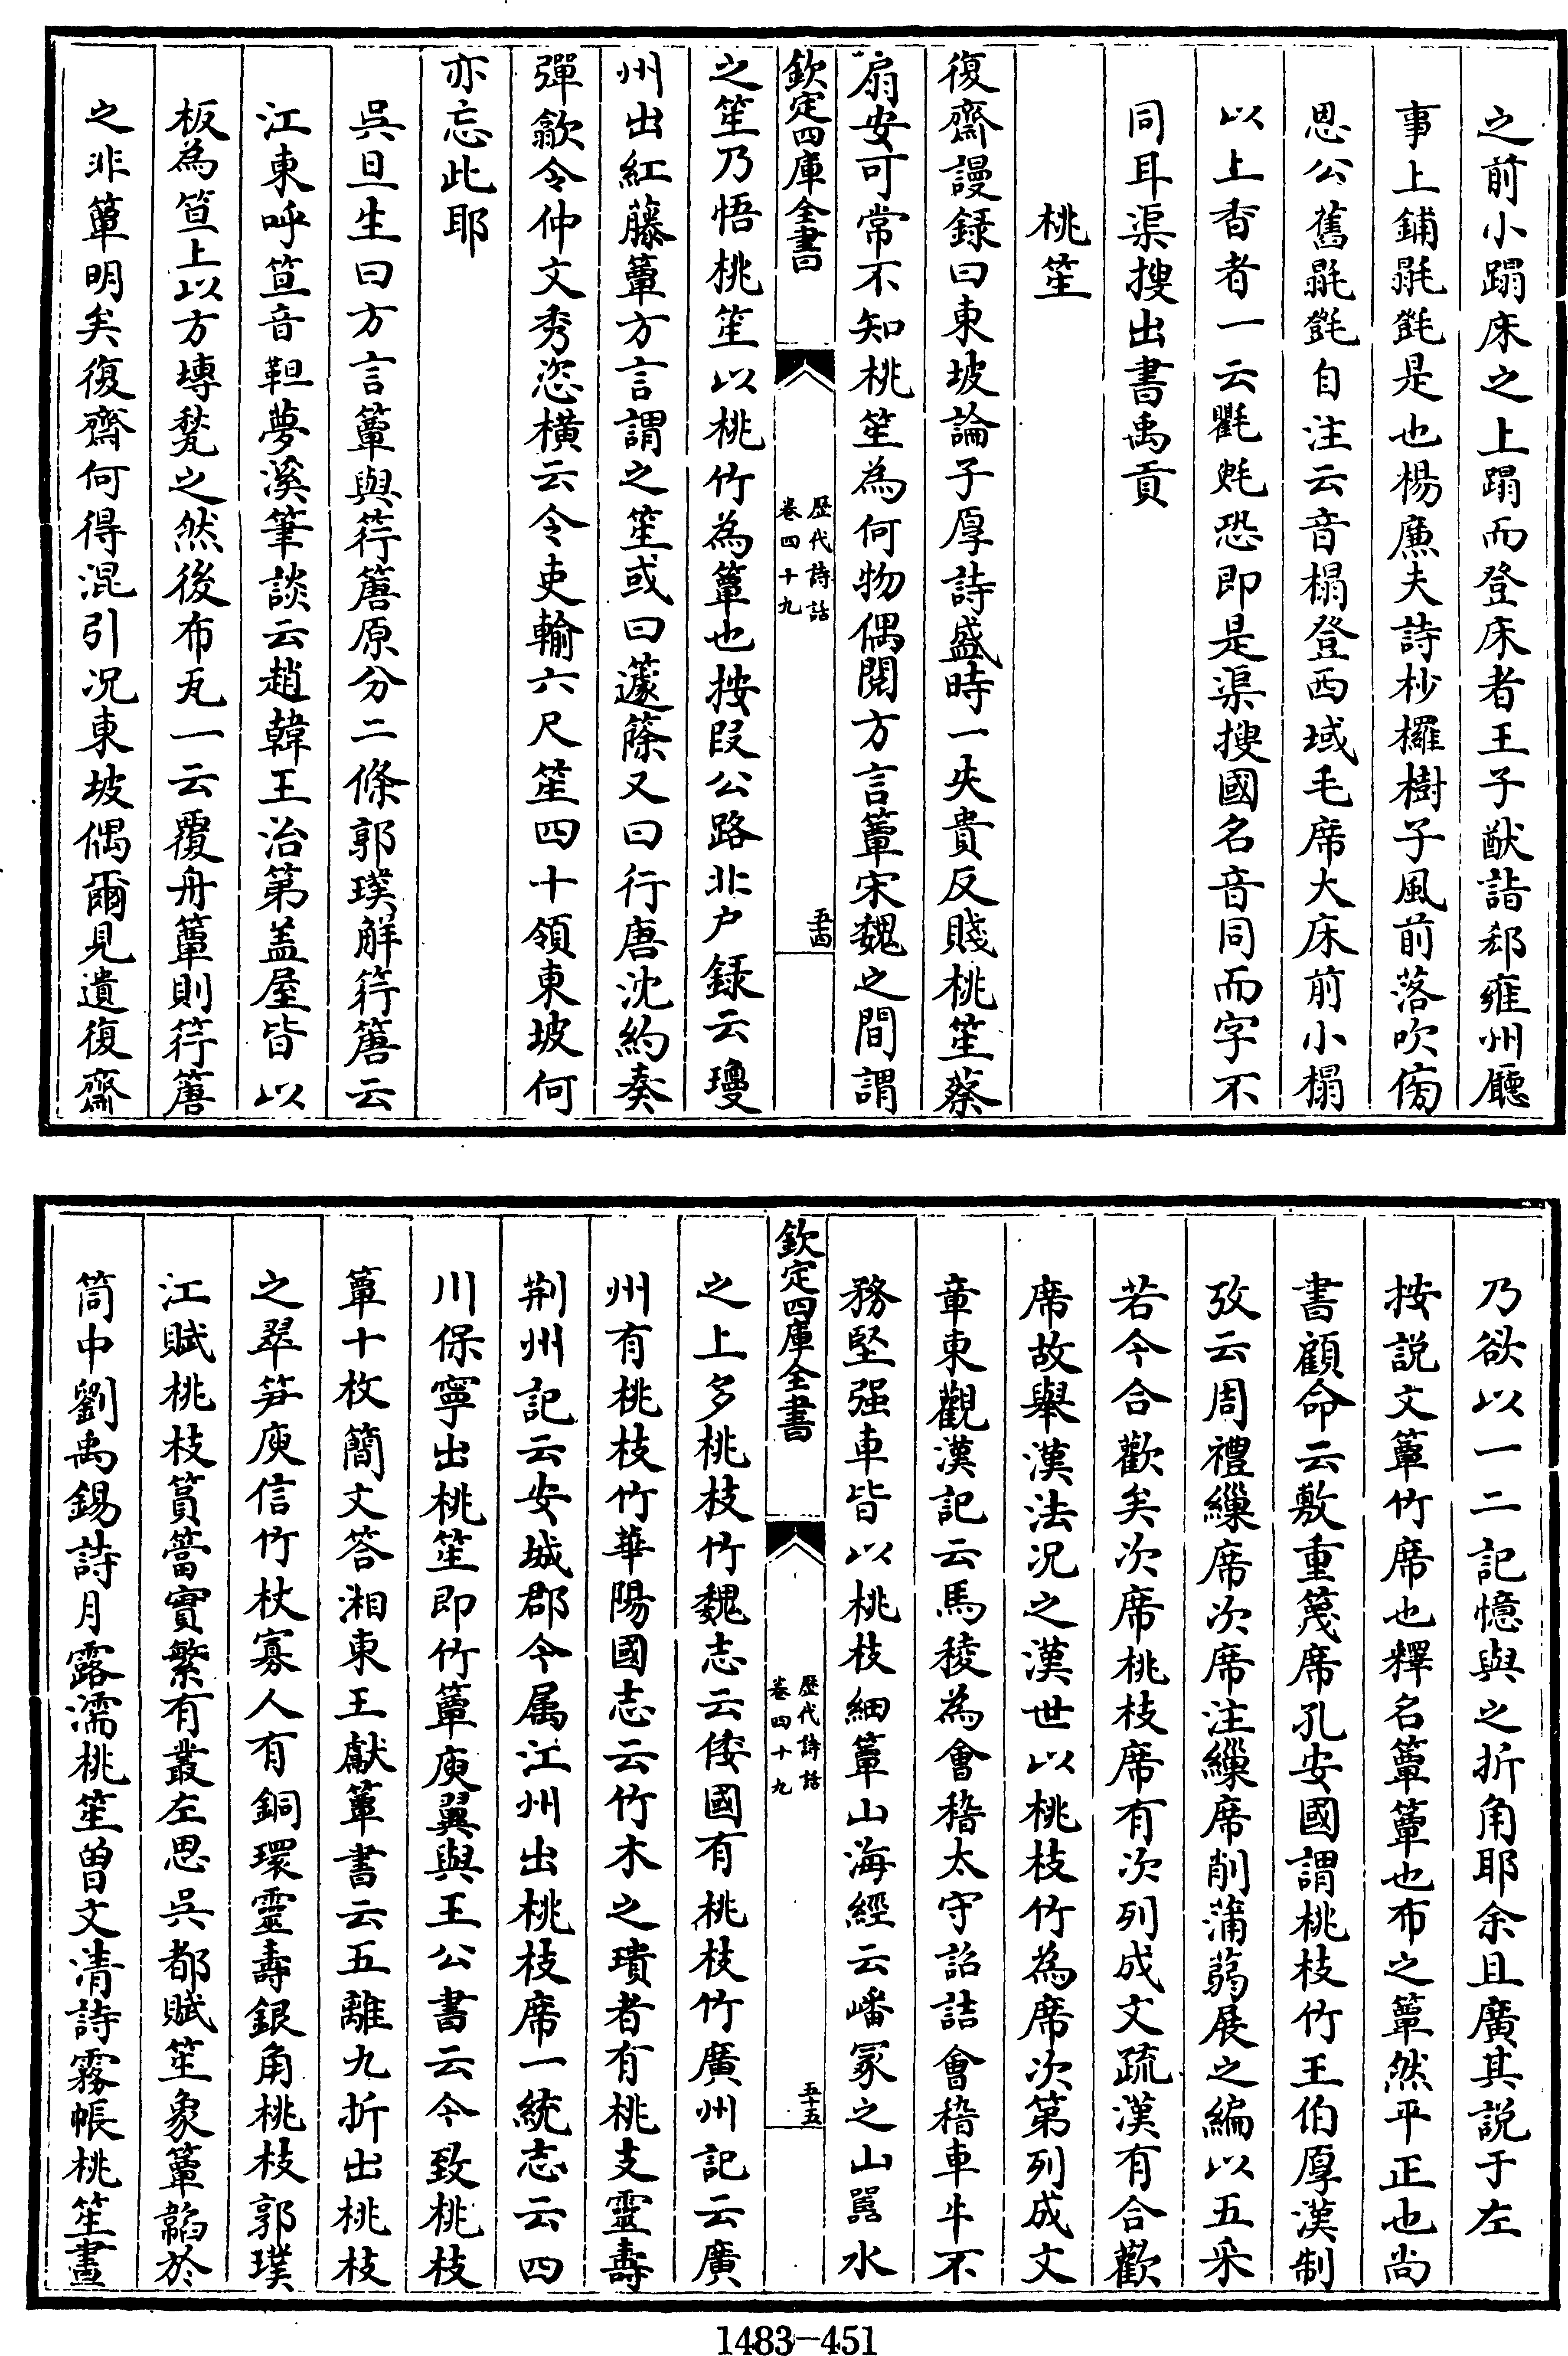 之前小蹋床之上蹋而登床者王子猷詣郄雍州廳
事上鋪㲮㲪是也楊廉夫詩杪欏樹子風前落吹傍
恩公舊㲮㲪自注云音榻登西域毛席大床前小榻
以上香者一云氍毹恐即是渠搜國名音同而字不
同耳渠搜出書禹貢
桃笙
復齋謾録曰東坡論子厚詩盛時一失貴反賤桃笙蔡
扇安可常不知桃笙為何物偶閱方言簟宋魏之間謂
欽定四庫全書
歷代詩話
卷四十九
五十四
之笙乃悟桃笙以桃竹為簟也按段公路北户録云瓊
州出紅藤簟方言謂之笙或曰籧篨又曰行唐沈約奏
彈歙令仲文秀恣橫云令吏輸六尺笙四十領東坡何
亦忘此耶
吳旦生曰方言簟與筕篖原分二條郭璞解筕篖云
江東呼笪音靼夢溪筆談云趙韓王治第盖屋皆以
板為笪上以方塼甃之然後布瓦一云覆舟簟則筕篖
之非簟明矣復齋何得混引况東坡偶爾見遺復齋
乃欲以一二記憶與之折角耶余且廣其説于左
按説文簟竹席也釋名簟簟也布之簟然平正也尚
書顧命云敷重篾席孔安國謂桃枝竹王伯厚漢制
攷云周禮繅席次席注繅席削蒲蒻展之編以五采
若今合歡矣次席桃枝席有次列成文疏漢有合歡
席故舉漢法况之漢世以桃枝竹為席次第列成文
章東觀漢記云馬稜為會稽太守詔詰會稽車牛不
務堅强車皆以桃枝細簟山海經云嶓冢之山嚣水
欽定四庫全書
歷代詩話
卷四十九
五十五
之上多桃枝竹魏志云倭國有桃枝竹廣州記云廣
州有桃枝竹華陽國志云竹木之璝者有桃支靈壽
荆州記云安城郡今属江州出桃枝席一統志云四
川保寧出桃笙即竹簟庾翼與王公書云今致桃枝
簟十枚簡文答湘東王獻簟書云五離九折出桃枝
之翠笋庾信竹杖寡人有銅環靈壽銀角桃枝郭璞
江賦桃枝篔簹實繁有叢左思吳都賦笙象簟韜於
筒中劉禹錫詩月露濡桃笙曾文清詩霧帳桃笙晝
1483-451